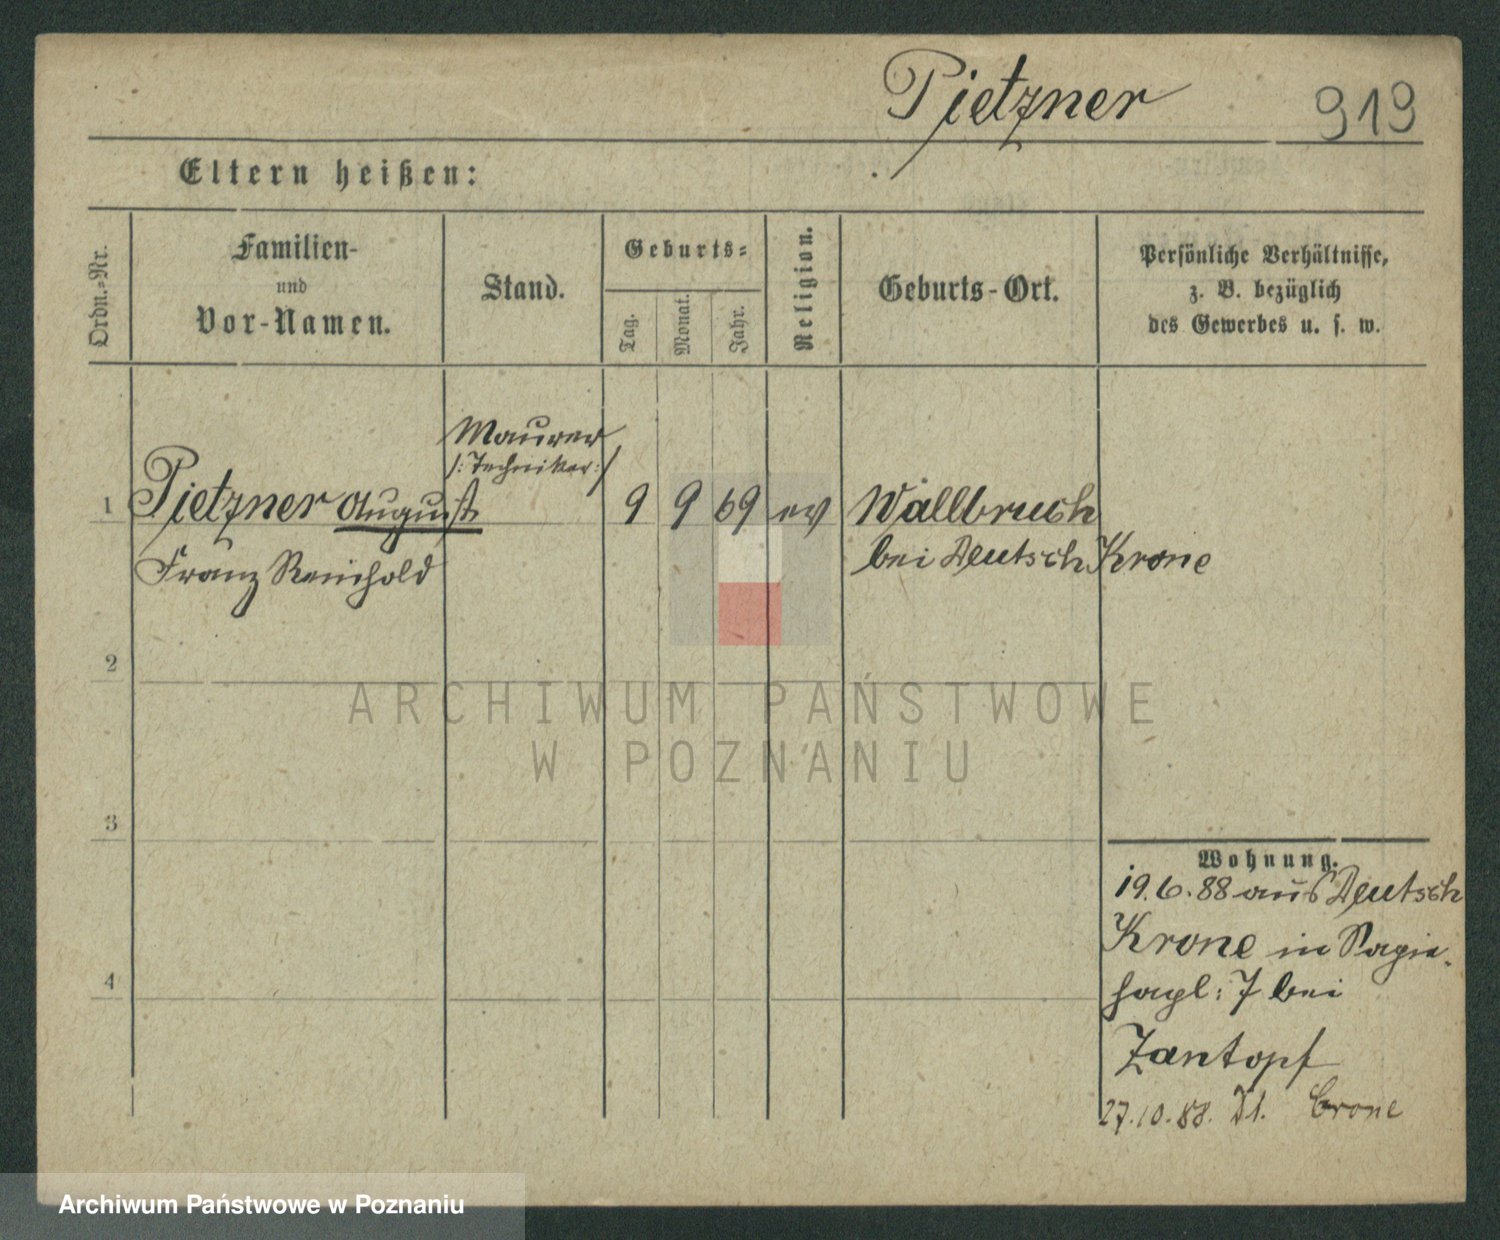 Pietzner 919
Eltern heißen:
Ordn.-Nr.
Familien-
und
Vor-Namen.
Stand.
Geburts-
Tag.
Monat.
Jahr.
Religion.
Geburts-Ort.
Persönliche Verhältnisse,
z. B. bezüglich
des Gewerbes u. s. w.
Maurer
/: Techniker :/
1 Pietzner August 9 9 69 ev Wallbruch
Franz Reinhold bei Deutsch Krone
2
ARCHIWUM PAŃSTWOWE
W POZNANIU
3
Wohnung.
19.6.88 aus Deutsch
Krone in
7 bei
4
Zantopf
27.10.88. Dt. Crone
Archiwum Państwowe w Poznaniu